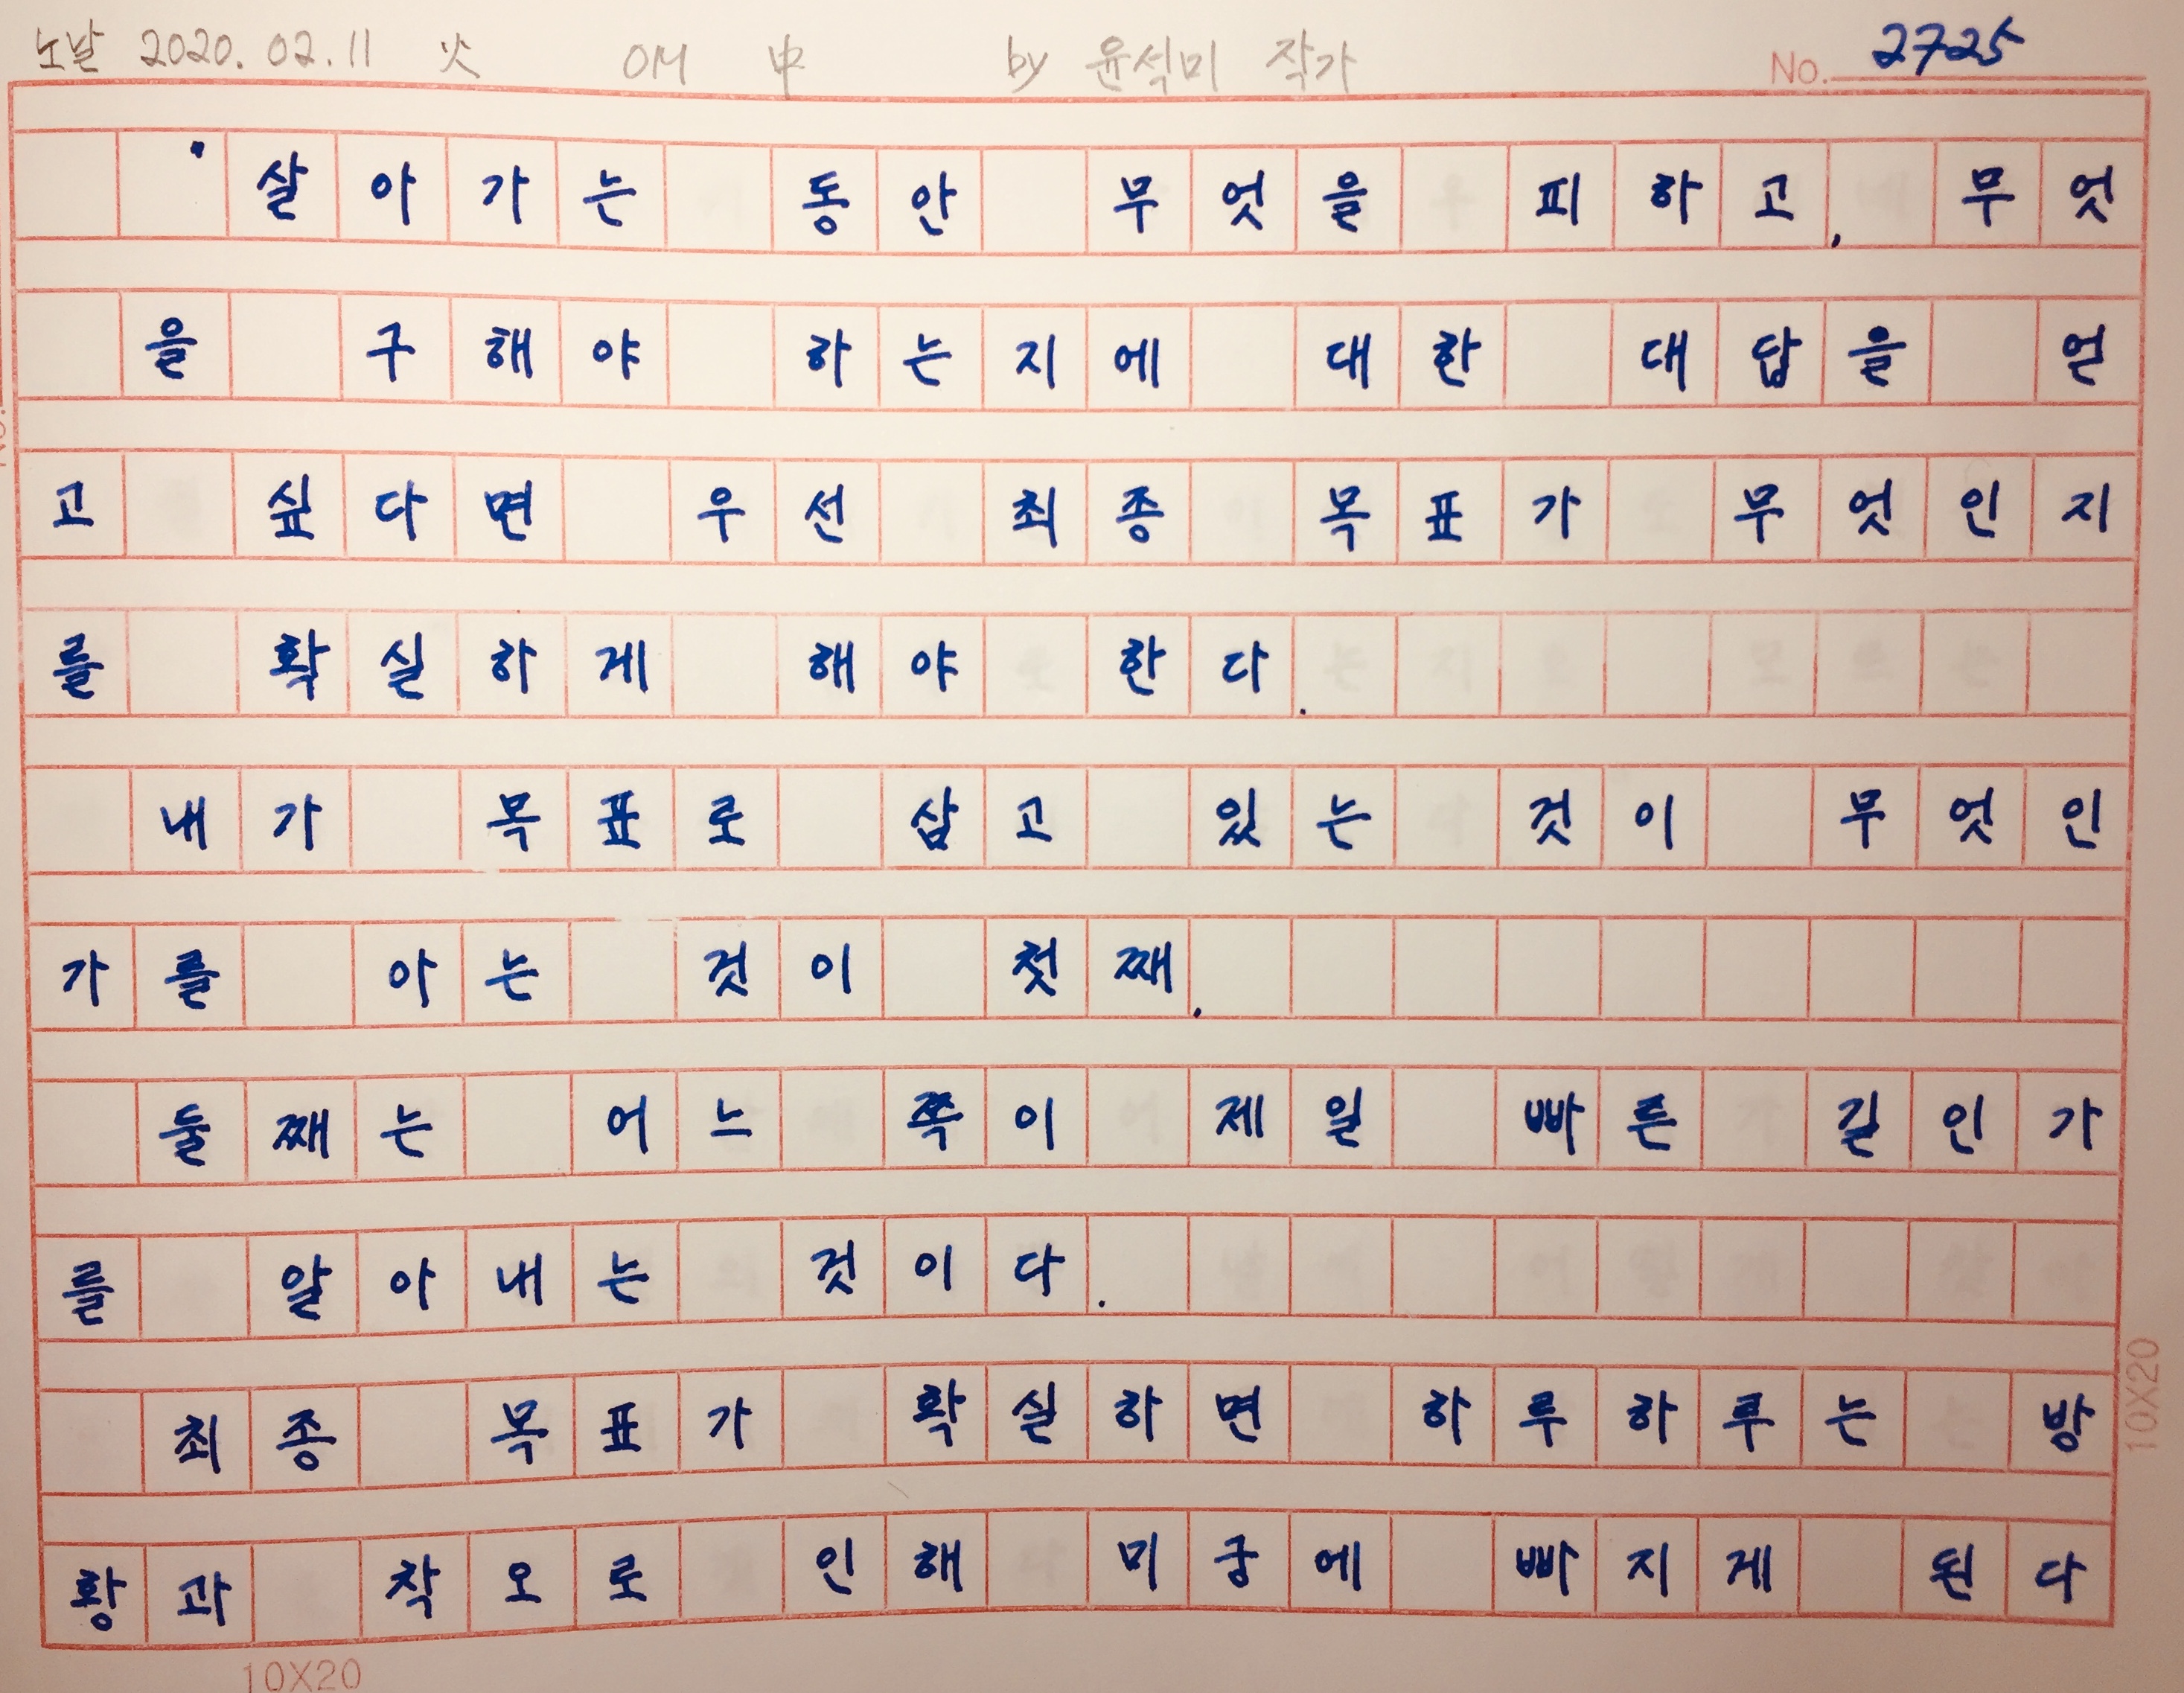 노날 2020. 02. 11 火 OM 中 by 윤석미 작가 No. 2725
· 살아가는 동안 무엇을 피하고, 무엇
을 구해야 하는지에 대한 대답을 얻
고 싶다면 우선 최종 목표가 무엇인지
를 확실하게 해야 한다.
내가 목표로 삼고 있는 것이 무엇인
가를 아는 것이 첫째.
둘째는 어느 쪽이 제일 빠른 길인가
를 알아내는 것이다.
최종 목표가 확실하면 하루하루는 방
황과 착오로 인해 미궁에 빠지게 된다
10X20
10X20